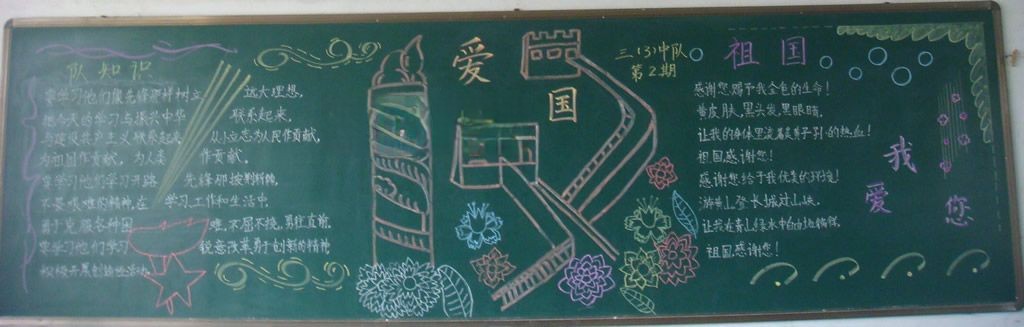 队知识
要学习他们像先锋那样树立 远大理想,
把今天的学习与振兴中华 联系起来,
与建设共产主义联系起来 从小立志为人民作贡献,
为祖国作贡献,为人类 作贡献.
要学习他们学习开路 先锋那披荆斩棘,
不畏艰难的精神,在 学习工作和生活中,
勇于克服各种困 难,不屈不挠,勇往直前.
要学习他们学习 锐意改革勇于创新的精神
积极开展创造性活动.
爱
国
三.(3)中队
第2期
祖国
感谢您赐予我金色的生命!
黄皮肤,黑头发,黑眼睛,
让我的身体里流着炎黄子孙的热血!
祖国感谢您!
感谢您给于我优美的环境!
游黄山,登长城,
让我在青山绿水中自由徜徉,
祖国,感谢您!
我
爱
您